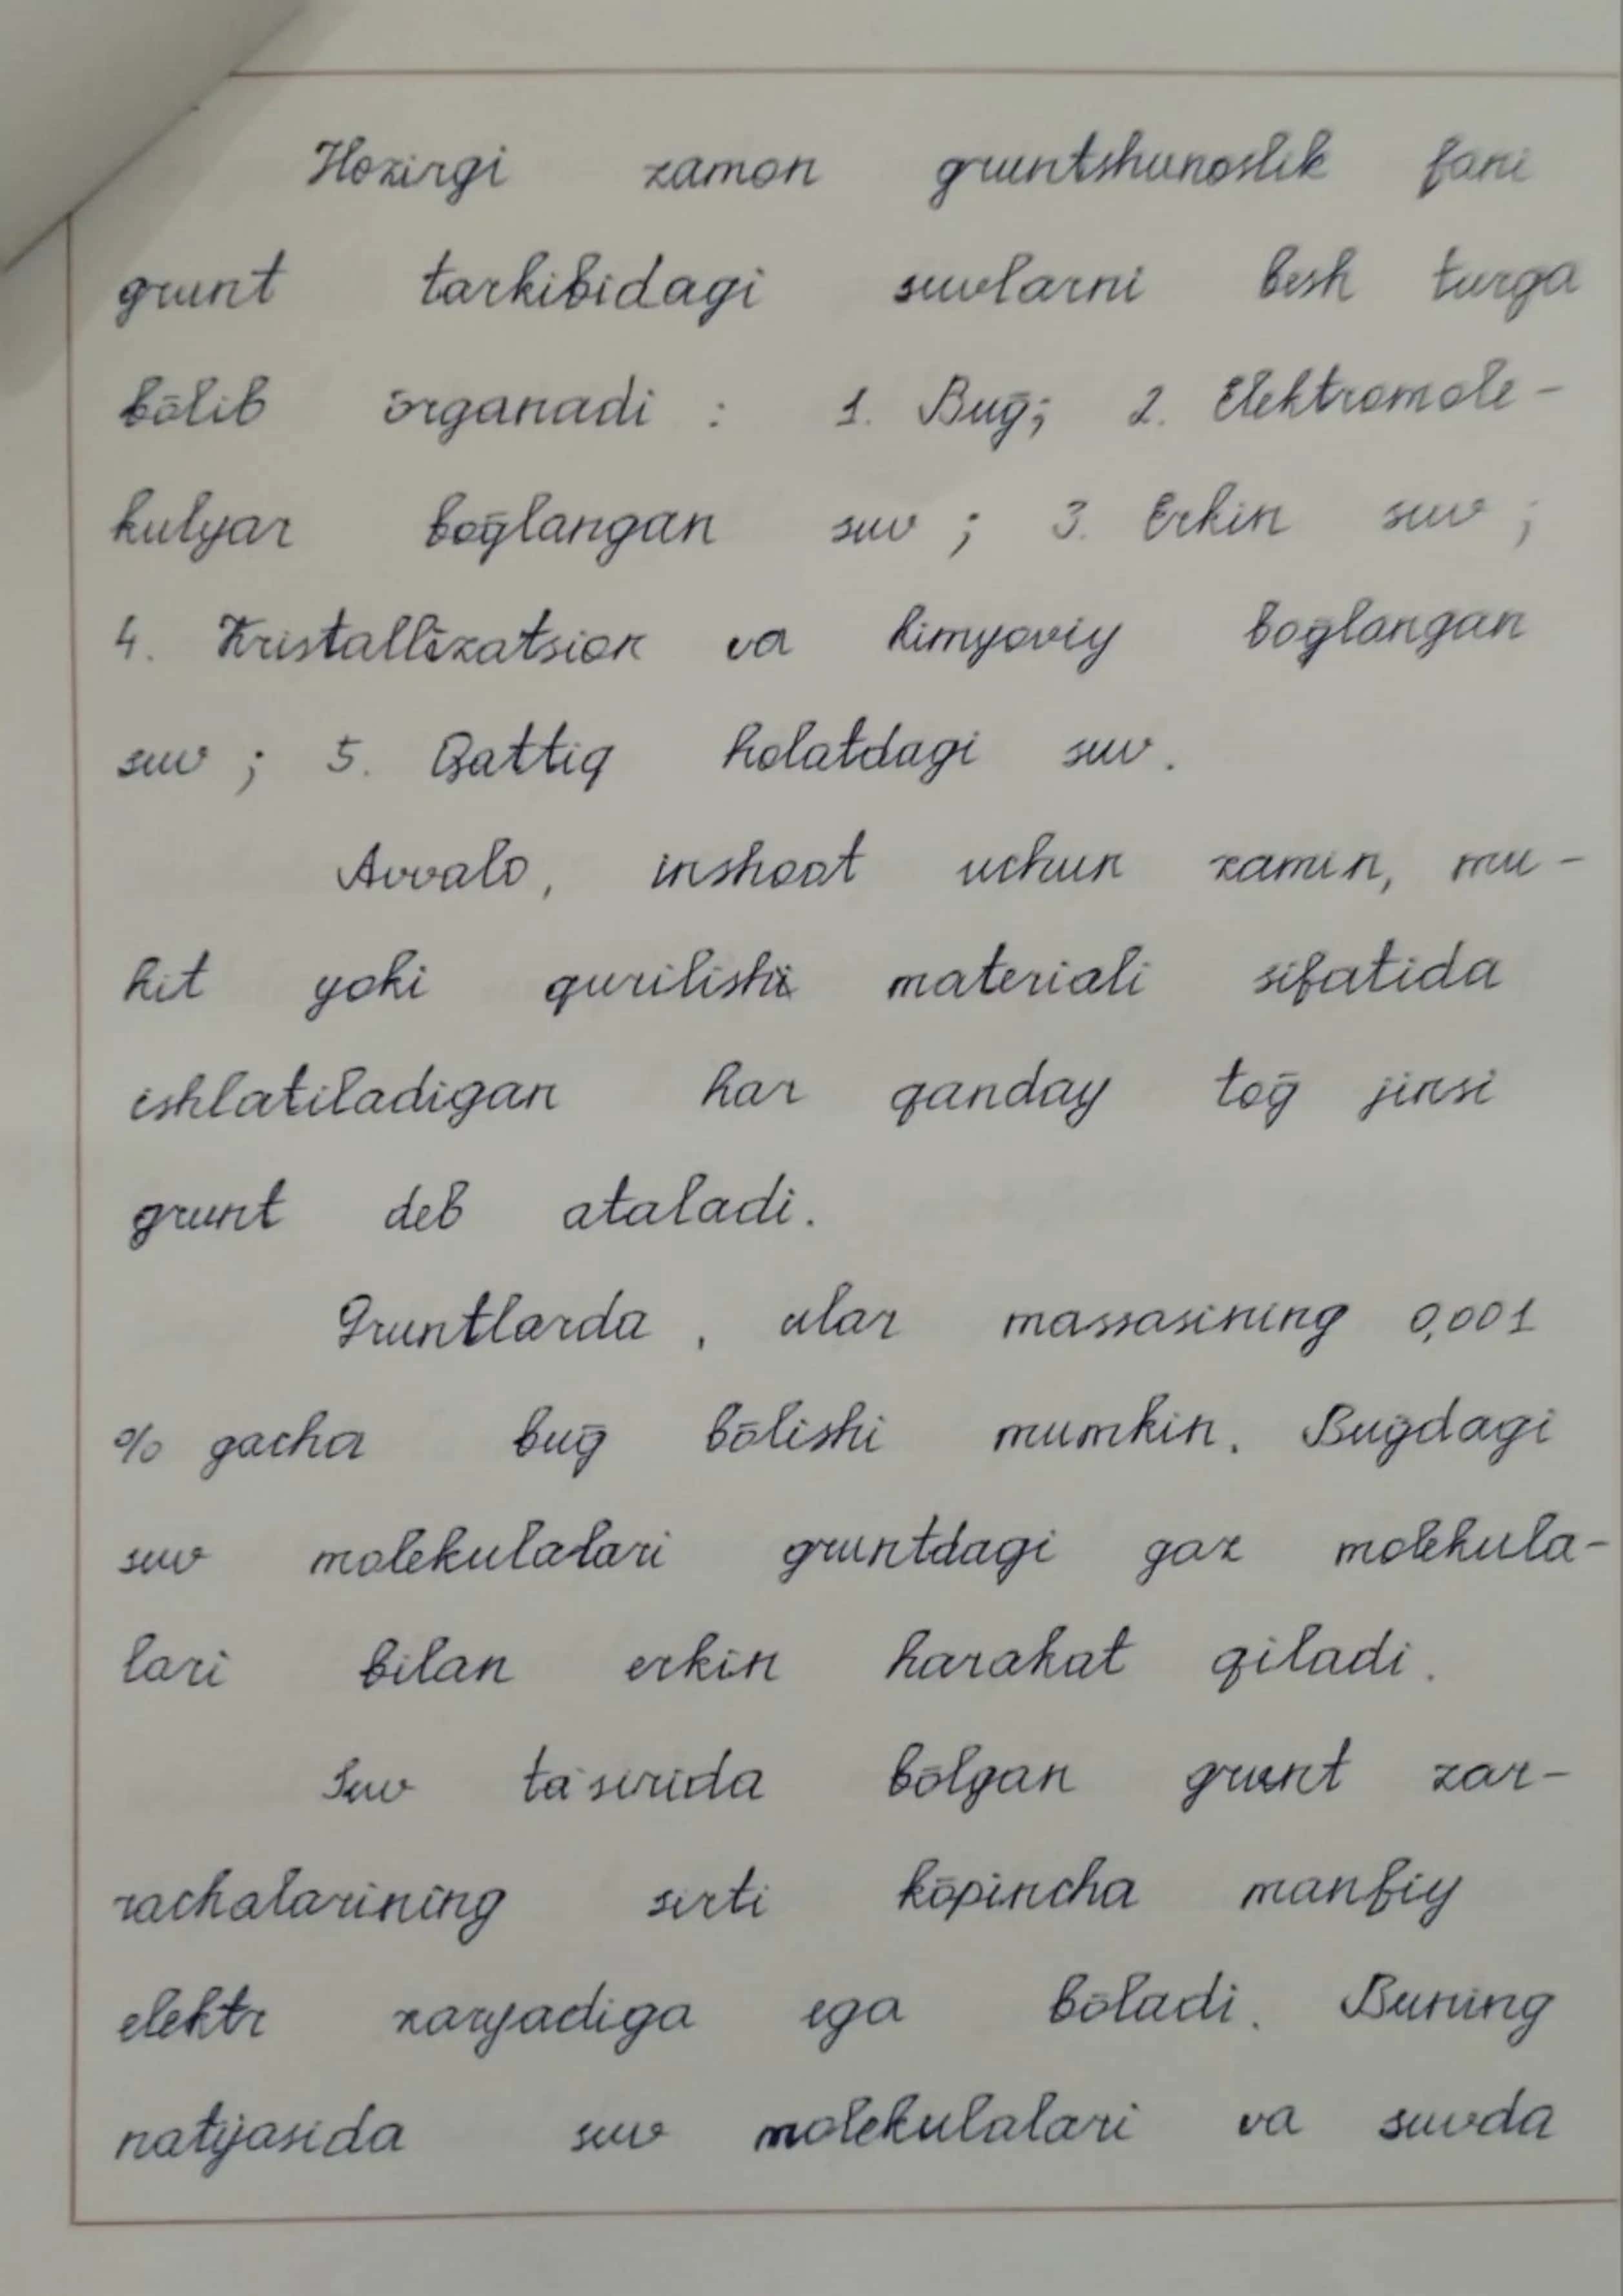 Hozirgi zamon gruntshunoslik fani
grunt tarkibidagi suvlarni besh turga
bōlib ōrganadi : 1. Buḡ; 2. Elektromole-
kulyar boḡlangan suv ; 3. Erkin suv ;
4. Kristallizatsion va kimyoviy boḡlangan
suv ; 5. Qattiq holatdagi suv.
Avvalo, inshoot uchun zamin, mu-
hit yoki qurilishi materiali sifatida
ishlatiladigan har qanday toḡ jinsi
grunt deb ataladi.
Gruntlarda , ular massasining 0,001
% gacha buḡ bōlishi mumkin. Buḡdagi
suv molekulalari gruntdagi gaz molekula-
lari bilan erkin harakat qiladi.
Suv ta'sirida bōlgan grunt zar-
rachalarining sirti kōpincha manfiy
elektr zaryadiga ega bōladi. Buning
natijasida suv molekulalari va suvda